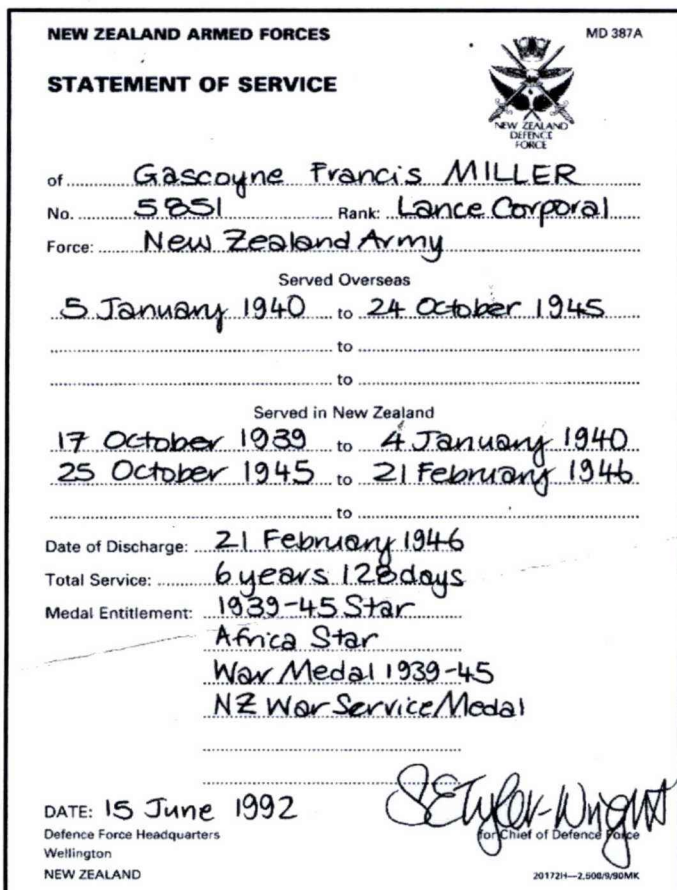 NEW ZEALAND ARMED FORCES MD 387A
STATEMENT OF SERVICE
NEW ZEALAND
DEFENCE
FORCE
of Gascoyne Francis MILLER
No. 5851 Rank: Lance Corporal
Force: New Zealand Army
Served Overseas
5 January 1940 to 24 October 1945
to
to
Served in New Zealand
17 October 1939 to 4 January 1940
25 October 1945 to 21 February 1946
to
Date of Discharge: 21 February 1946
Total Service: 6 years 128 days
Medal Entitlement: 1939-45 Star
Africa Star
War Medal 1939-45
NZ War Service Medal
SETyler-Wright
DATE: 15 June 1992
for Chief of Defence Force
Defence Force Headquarters
Wellington
NEW ZEALAND 20172H—2,500/9/90MK